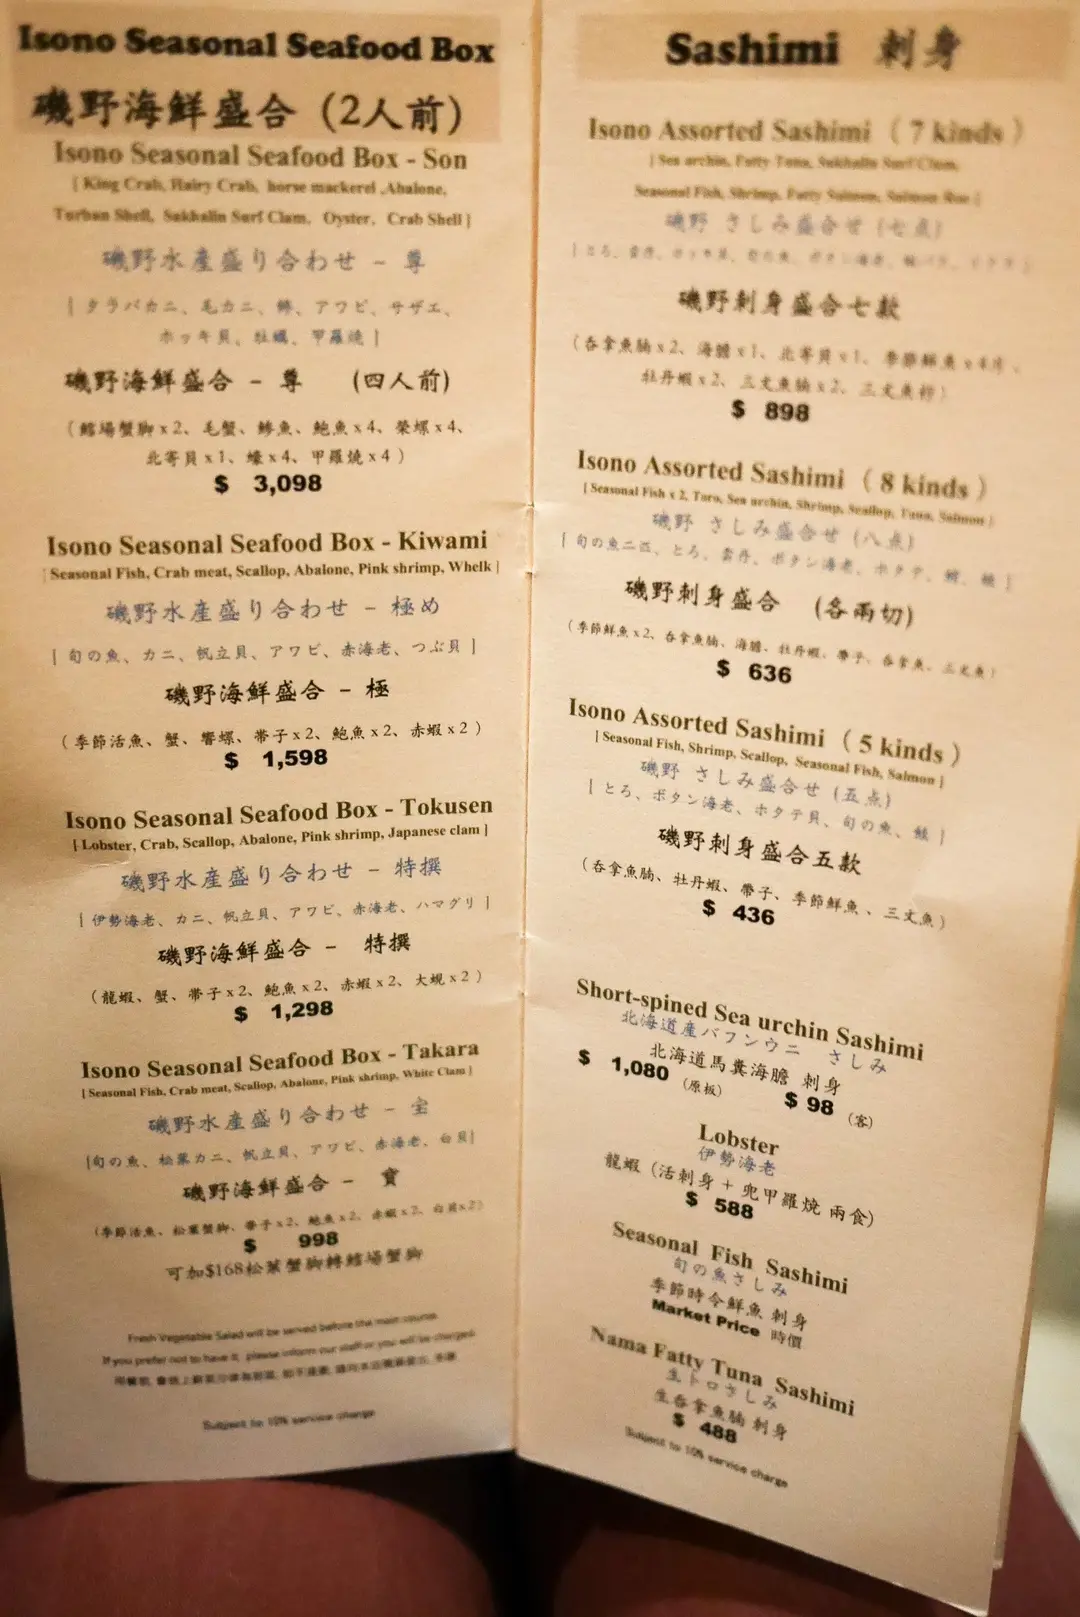 Isono Seasonal Seafood Box
磯野海鮮盛合 (2人前)
Isono Seasonal Seafood Box - Son
[ King Crab, Hairy Crab, horse mackerel ,Abalone,
Turban Shell, Sakhalin Surf Clam, Oyster, Crab Shell ]
磯野水産盛り合わせ - 尊
[ タラバカニ、毛カニ、鰺、アワビ、サザエ、
ホッキ貝、牡蠣、甲羅焼 ]
磯野海鮮盛合 - 尊 (四人前)
(鱈場蟹脚 x 2、毛蟹、鰺魚、鮑魚 x 4、榮螺 x 4、
北寄貝 x 1、蠔 x 4、甲羅燒 x 4 )
$ 3,098
Isono Seasonal Seafood Box - Kiwami
[ Seasonal Fish, Crab meat, Scallop, Abalone, Pink shrimp, Whelk ]
磯野水産盛り合わせ - 極め
[ 旬の魚、カニ、帆立貝、アワビ、赤海老、つぶ貝 ]
磯野海鮮盛合 - 極
(季節活魚、蟹、響螺、帶子 x 2、鮑魚 x 2、赤蝦 x 2 )
$ 1,598
Isono Seasonal Seafood Box - Tokusen
[ Lobster, Crab, Scallop, Abalone, Pink shrimp, Japanese clam ]
磯野水産盛り合わせ - 特撰
[ 伊勢海老、カニ、帆立貝、アワビ、赤海老、ハマグリ ]
磯野海鮮盛合 - 特撰
(龍蝦、蟹、帶子 x 2、鮑魚 x 2、赤蝦 x 2、大蜆 x 2 )
$ 1,298
Isono Seasonal Seafood Box - Takara
[ Seasonal Fish, Crab meat, Scallop, Abalone, Pink shrimp, White Clam ]
磯野水産盛り合わせ - 宝
[旬の魚、松葉カニ、帆立貝、アワビ、赤海老、白貝]
磯野海鮮盛合 - 寶
(季節活魚、松葉蟹脚、帶子 x 2、鮑魚 x 2、赤蝦 x 2、白貝 x 2)
$ 998
可加$168松葉蟹脚轉鱈場蟹脚
Fresh Vegetable Salad will be served before the main course
If you prefer not to have it, please inform our staff or you will be charged
Subject to 10% service charge
Sashimi 刺身
Isono Assorted Sashimi ( 7 kinds )
[ Sea urchin, Fatty Tuna, Sakhalin Surf Clam,
Seasonal Fish, Shrimp, Fatty Salmon, Salmon Roe ]
磯野 さしみ盛合せ (七点)
磯野刺身盛合七款
(吞拿魚腩 x 2、海膽 x 1、北寄貝 x 1、季節鮮魚 x 4片、
牡丹蝦 x 2、三文魚腩 x 2、三文魚籽)
$ 898
Isono Assorted Sashimi ( 8 kinds )
[ Seasonal Fish x 2, Toro, Sea urchin, Shrimp, Scallop, Tuna, Salmon ]
磯野 さしみ盛合せ (八点)
[ 旬の魚二匹、とろ、雲丹、ボタン海老、ホタテ、鮪、鮭 ]
磯野刺身盛合 (各兩切)
(季節鮮魚 x 2、吞拿魚腩、海膽、牡丹蝦、帶子、吞拿魚、三文魚)
$ 636
Isono Assorted Sashimi ( 5 kinds )
[ Seasonal Fish, Shrimp, Scallop, Seasonal Fish, Salmon ]
磯野 さしみ盛合せ (五点)
[ とろ、ボタン海老、ホタテ貝、旬の魚、鮭 ]
磯野刺身盛合五款
(吞拿魚腩、牡丹蝦、帶子、季節鮮魚、三文魚)
$ 436
Short-spined Sea urchin Sashimi
北海道産バフンウニ さしみ
北海道馬糞海膽 刺身
$ 1,080 (原板) $ 98 (客)
Lobster
伊勢海老
龍蝦 (活刺身 + 兜甲羅燒 兩食)
$ 588
Seasonal Fish Sashimi
旬の魚さしみ
季節時令鮮魚 刺身
Market Price 時價
Nama Fatty Tuna Sashimi
生トロさしみ
生吞拿魚腩 刺身
$ 488
Subject to 10% service charge